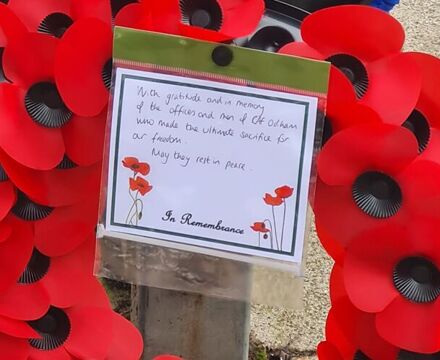 With gratitude and in memory
of the officers and men of CoF Oldham
who made the ultimate sacrifice for
our freedom.
May they rest in peace.
In Remembrance